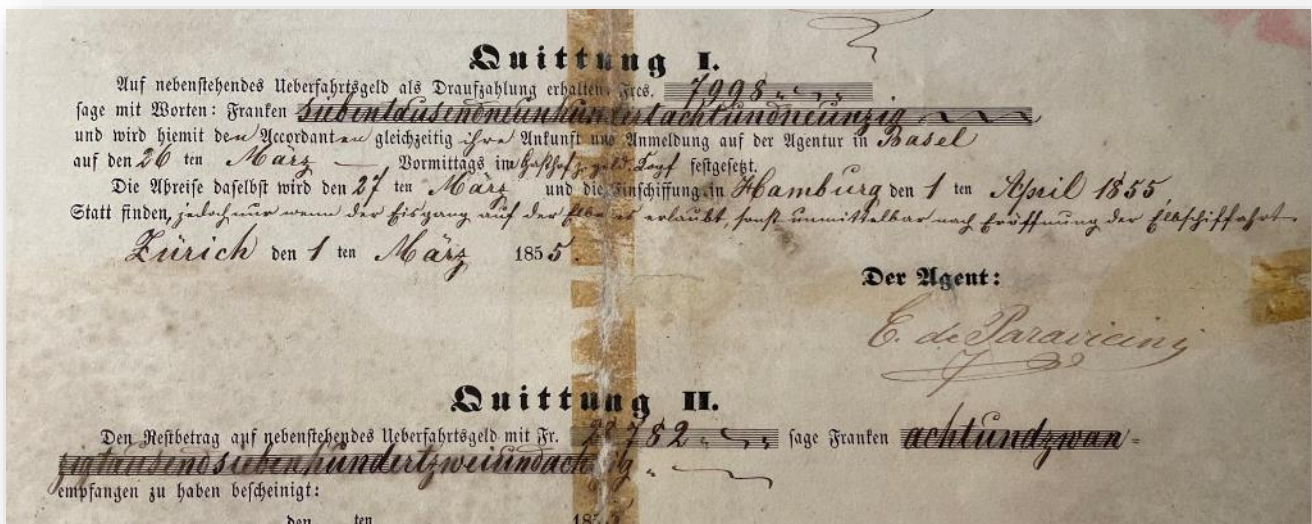 Quittung I.
Auf nebenstehendes Ueberfahrtsgeld als Draufzahlung erhalten Frcs. 7998
sage mit Worten: Franken siebentausendneunhundertachtundneunzig
und wird hiemit den Accordanten gleichzeitig ihre Ankunft und Anmeldung auf der Agentur in Basel
auf den 26 ten März — Vormittags im Gasthof z. gold. Kopf festgesetzt.
Die Abreise daselbst wird den 27 ten März und die Einschiffung in Hamburg den 1 ten April 1855
Statt finden, jedoch nur wenn der Eisgang auf der Elbe es erlaubt, sonst unmittelbar nach Eröffnung der Elbschiffahrt
Zürich den 1 ten März 1855.
Der Agent:
C. de Paravicini
Quittung II.
Den Restbetrag auf nebenstehendes Ueberfahrtsgeld mit Fr. 28782 sage Franken achtundzwan=
zigtausendsiebenhundertzweiundachtzig
empfangen zu haben bescheinigt:
den ten 185